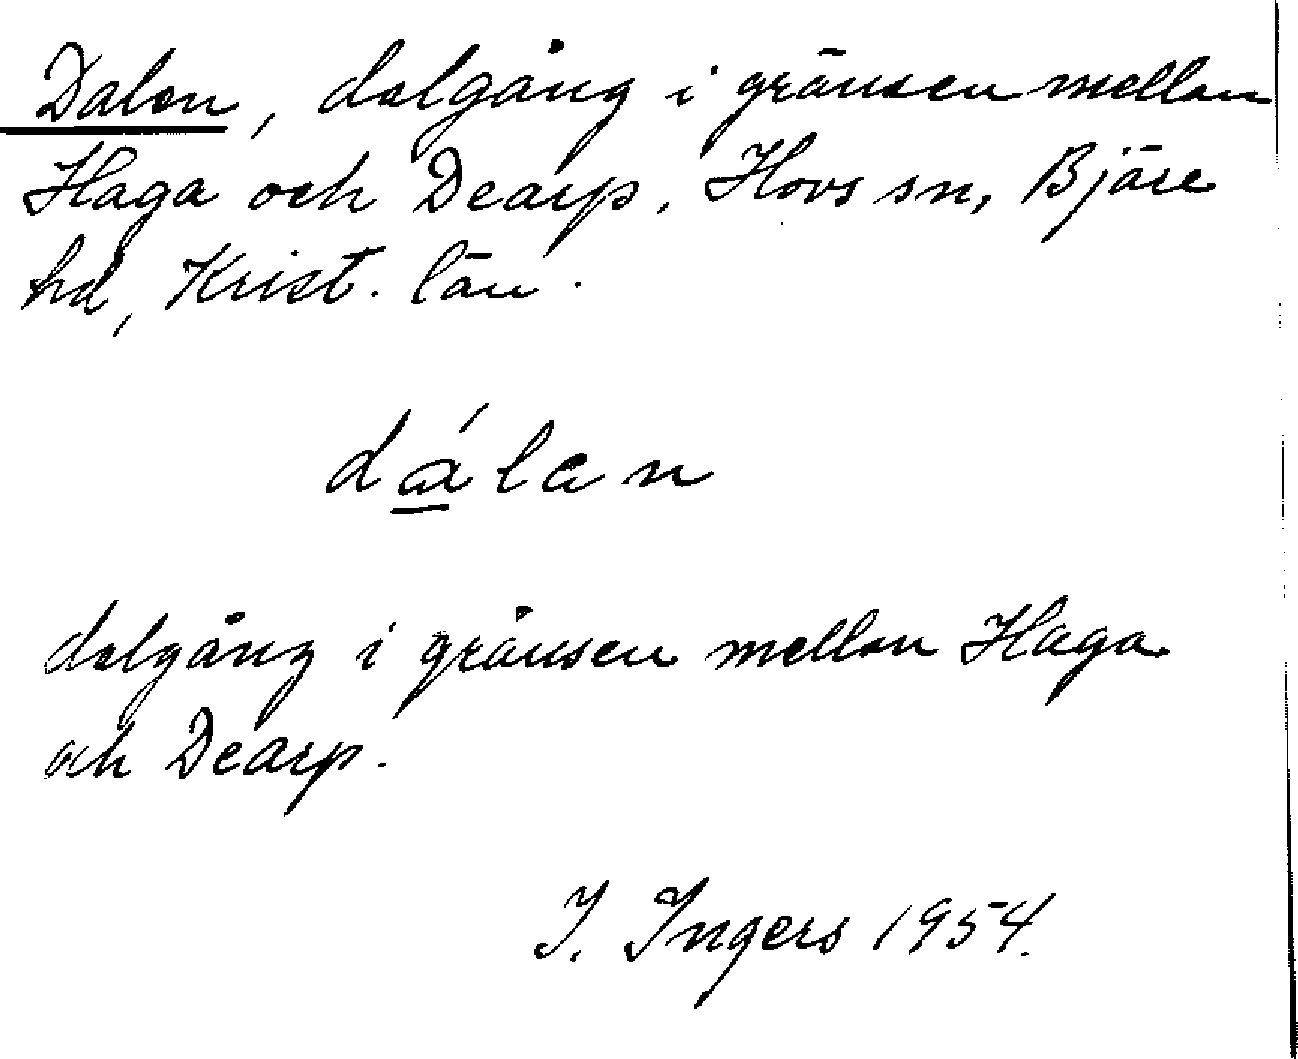 Dalen, dalgång i gränsen mellan
Haga och Dearp, Hovs sn, Bjäre
hd, Krist. län.
dálen
dalgång i gränsen mellan Haga
och Dearp.
I. Ingers 1954.